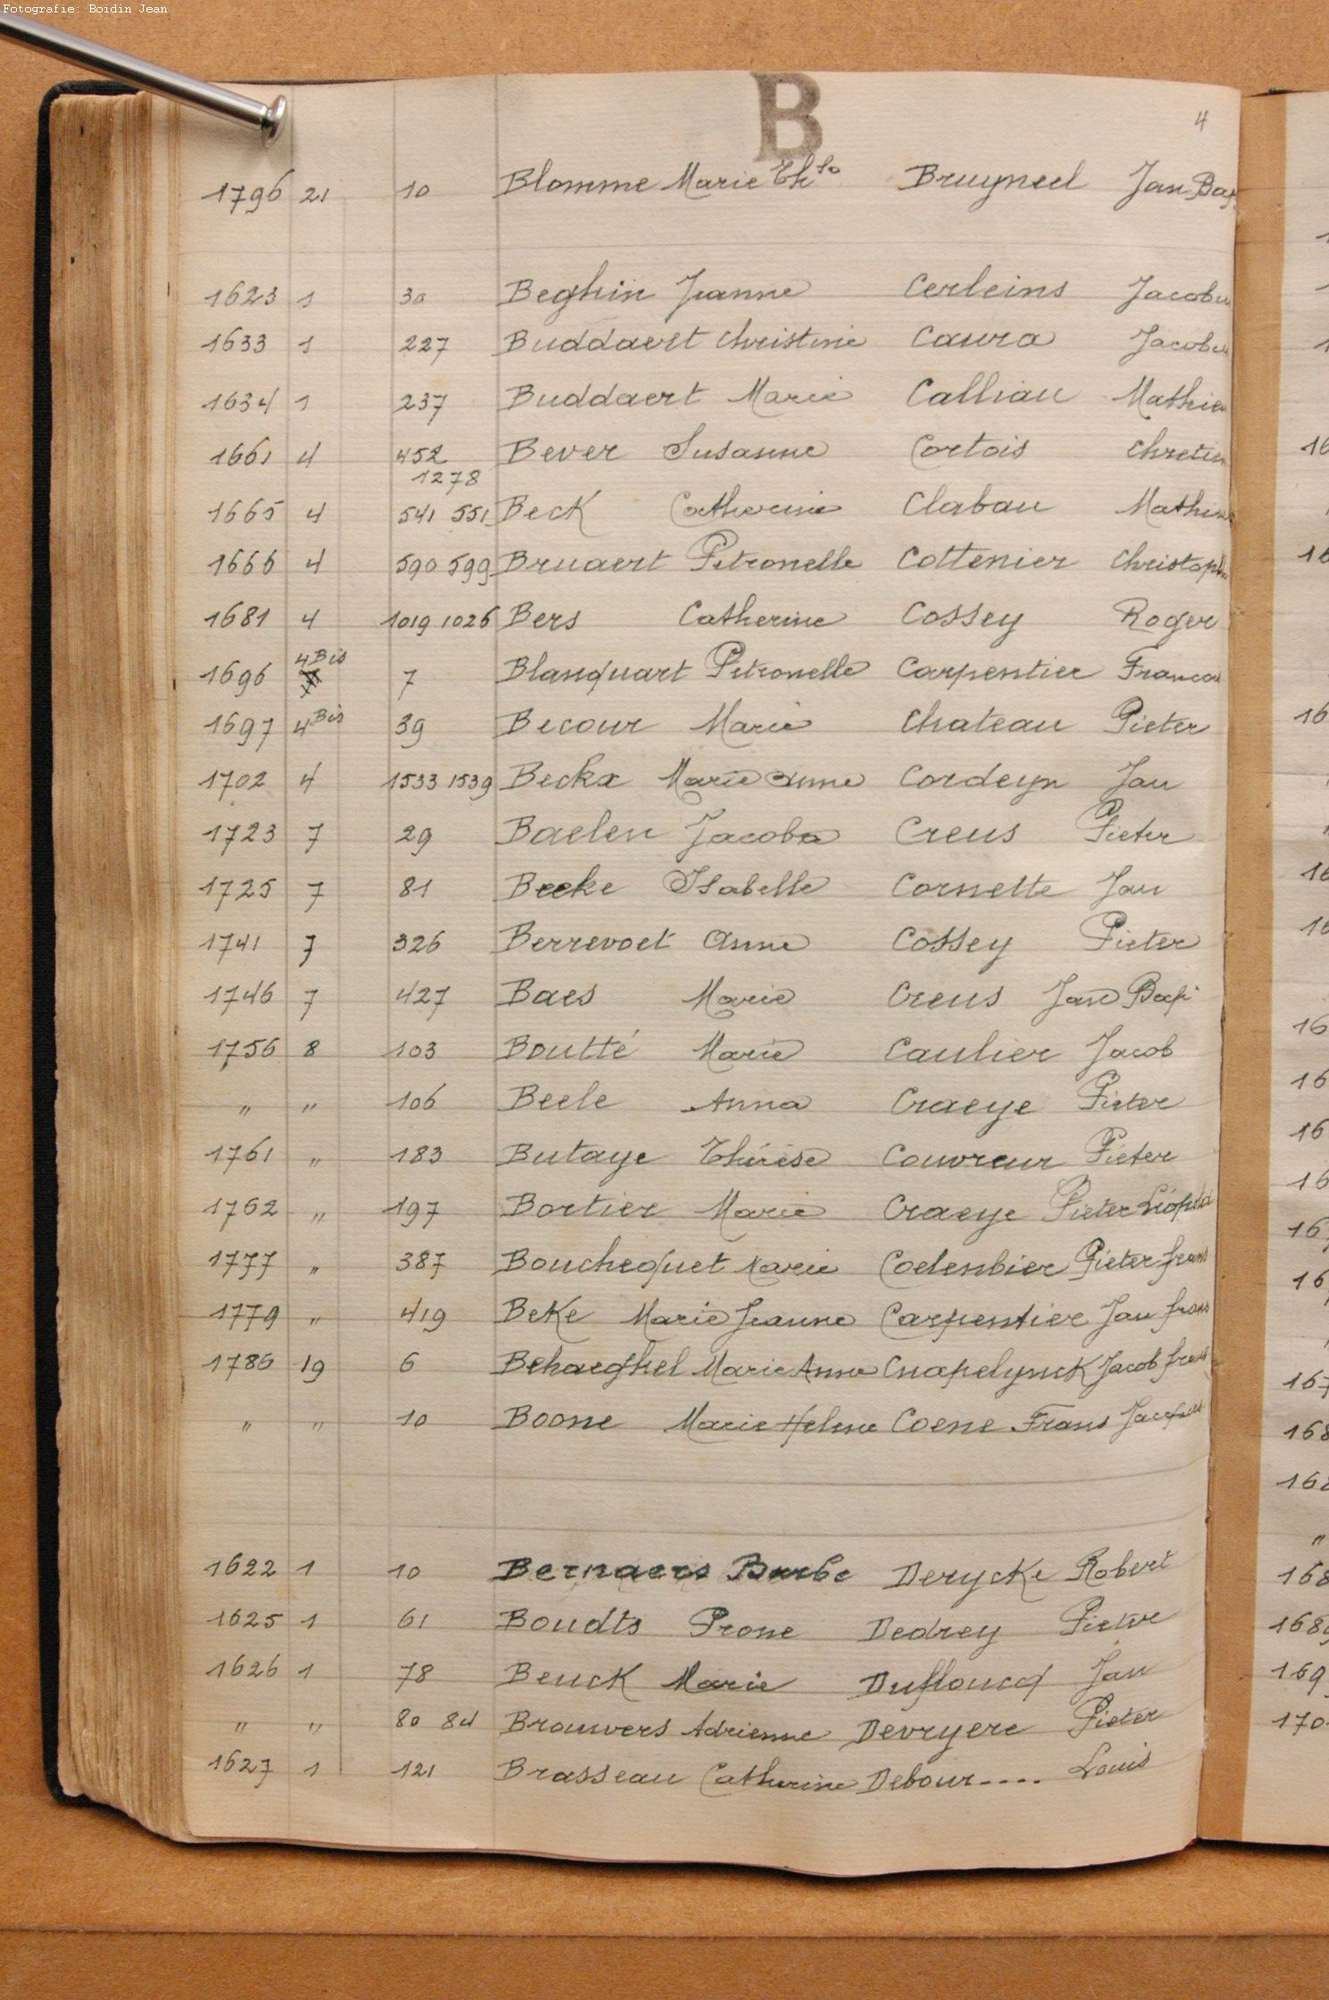 Fotografie: Boidin Jean
B
4
1796 21 10 Blomme Marie Th Bruyneel Jan Bap
1623 1 30 Beghin Jeanne Cerleins Jacobu
1633 1 227 Buddaert Christine Caura Jacobu
1634 1 237 Buddaert Marie Calliau Mathieu
1661 4 452 Bever Susanne Cortois Chretien
1278
1665 4 541 551 Beck Catherine Clabau Mathieu
1666 4 590 599 Bruaert Petronelle Cottenier Christophe
1681 4 1019 1026 Bers Catherine Cossey Roger
1696 4Bis 7 Blanquart Petronelle Carpentier Francois
1697 4Bis 39 Becour Marie Chateau Pieter
1702 4 1533 1539 Beckx Marie Anne Cordeyn Jan
1723 7 29 Baelen Jacoba Creus Pieter
1725 7 81 Becke Isabelle Cornette Jan
1741 7 326 Berrevoet Anne Cossey Pieter
1746 7 427 Baes Marie Creus Jan Bapt
1756 8 103 Boutté Marie Caulier Jacob
" " 106 Beele Anna Craeye Pieter
1761 " 183 Butaye Thérèse Couvreur Pieter
1762 " 197 Bortier Marie Craeye Pieter Léopold
1777 " 387 Bouchequet Marie Coelenbier Pieter frans
1779 " 419 Beke Marie Jeanne Carpentier Jan frans
1786 19 6 Behaeghel Marie Anne Cnapelynck Jacob frans
" " 10 Boone Marie Helene Coene Frans Jacques
1622 1 10 Bernaers Barbe Derycke Robert
1625 1 61 Boudts Prone Dedrey Pieter
1626 1 78 Beuck Marie Dufloucq Jan
" " 80 84 Brouvers Adrienne Devryere Pieter
1627 1 121 Brasseau Catherine Debour---- Louis